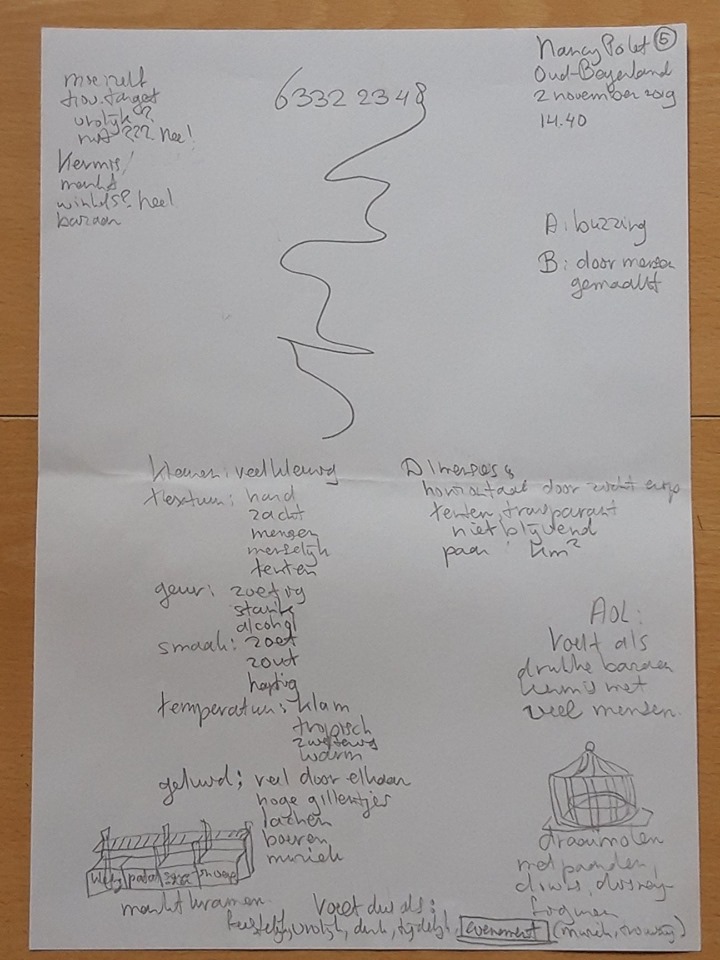 Nancy Polet 5
Oud-Beyerland
2 november 2019
14.40
6332 2348
target
vrolijk?
??? nee!
Kermis!
markt
winkels? heel
bazaar
A: buzzing
B: door mensen
gemaakt
kleuren: veelkleurig
textuur: hard
zacht
mensen
menselijk
tenten
geur: zoetig
stank
alcohol
smaak: zoet
zout
hartig
temperatuur: klam
tropisch
zweterig
warm
geluid: veel door elkaar
hoge gilletjes
lachen
boeren
muziek
patat snoep
marktkramen
Dimensies
horizontaal door
tenten, transparant
niet blijvend
paar km²
AOL:
Voelt als
drukke bazaar
kermis met
veel mensen.
draaimolen
met paarden,
figuren
Voelt dus als:
feestelijk, vrolijk, druk, tijdelijk, evenement (muziek,